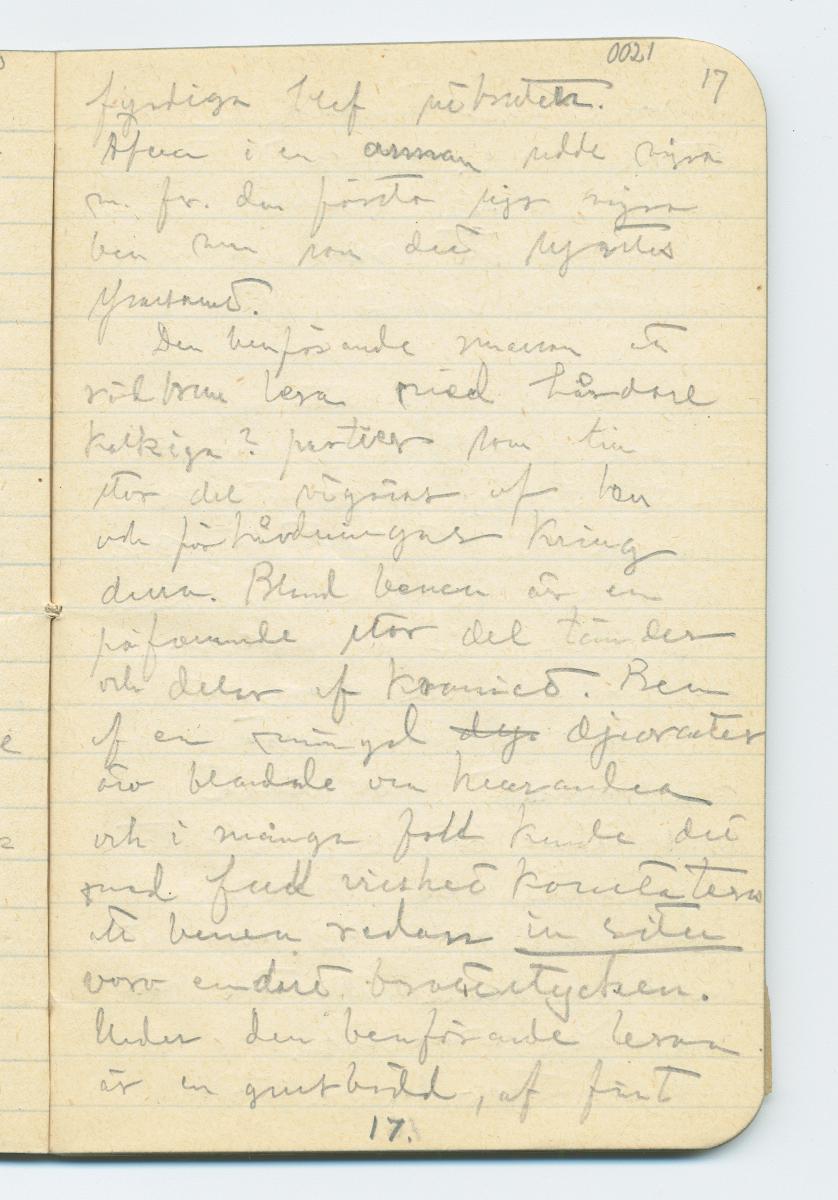 0021
17
fyndiga blef utbruten.
Afven i en annan redde
m. fr. den första
ben men som det
Den benförande massan är
rödbrun lera med hårdare
kalkiga? partier som till
stor del utgöras af ben
och förhårdningar kring
dessa. Bland benen är en
påfallande stor del tänder
och delar af kraniet. Ben
af en mängd djurarter
äro blandade om hvarandra
och i många fall kunde det
med full visshet konstateras
att benen redan in situ
voro endast brottstycken.
Under den benförande leran
är en grusbädd, af fint
17.